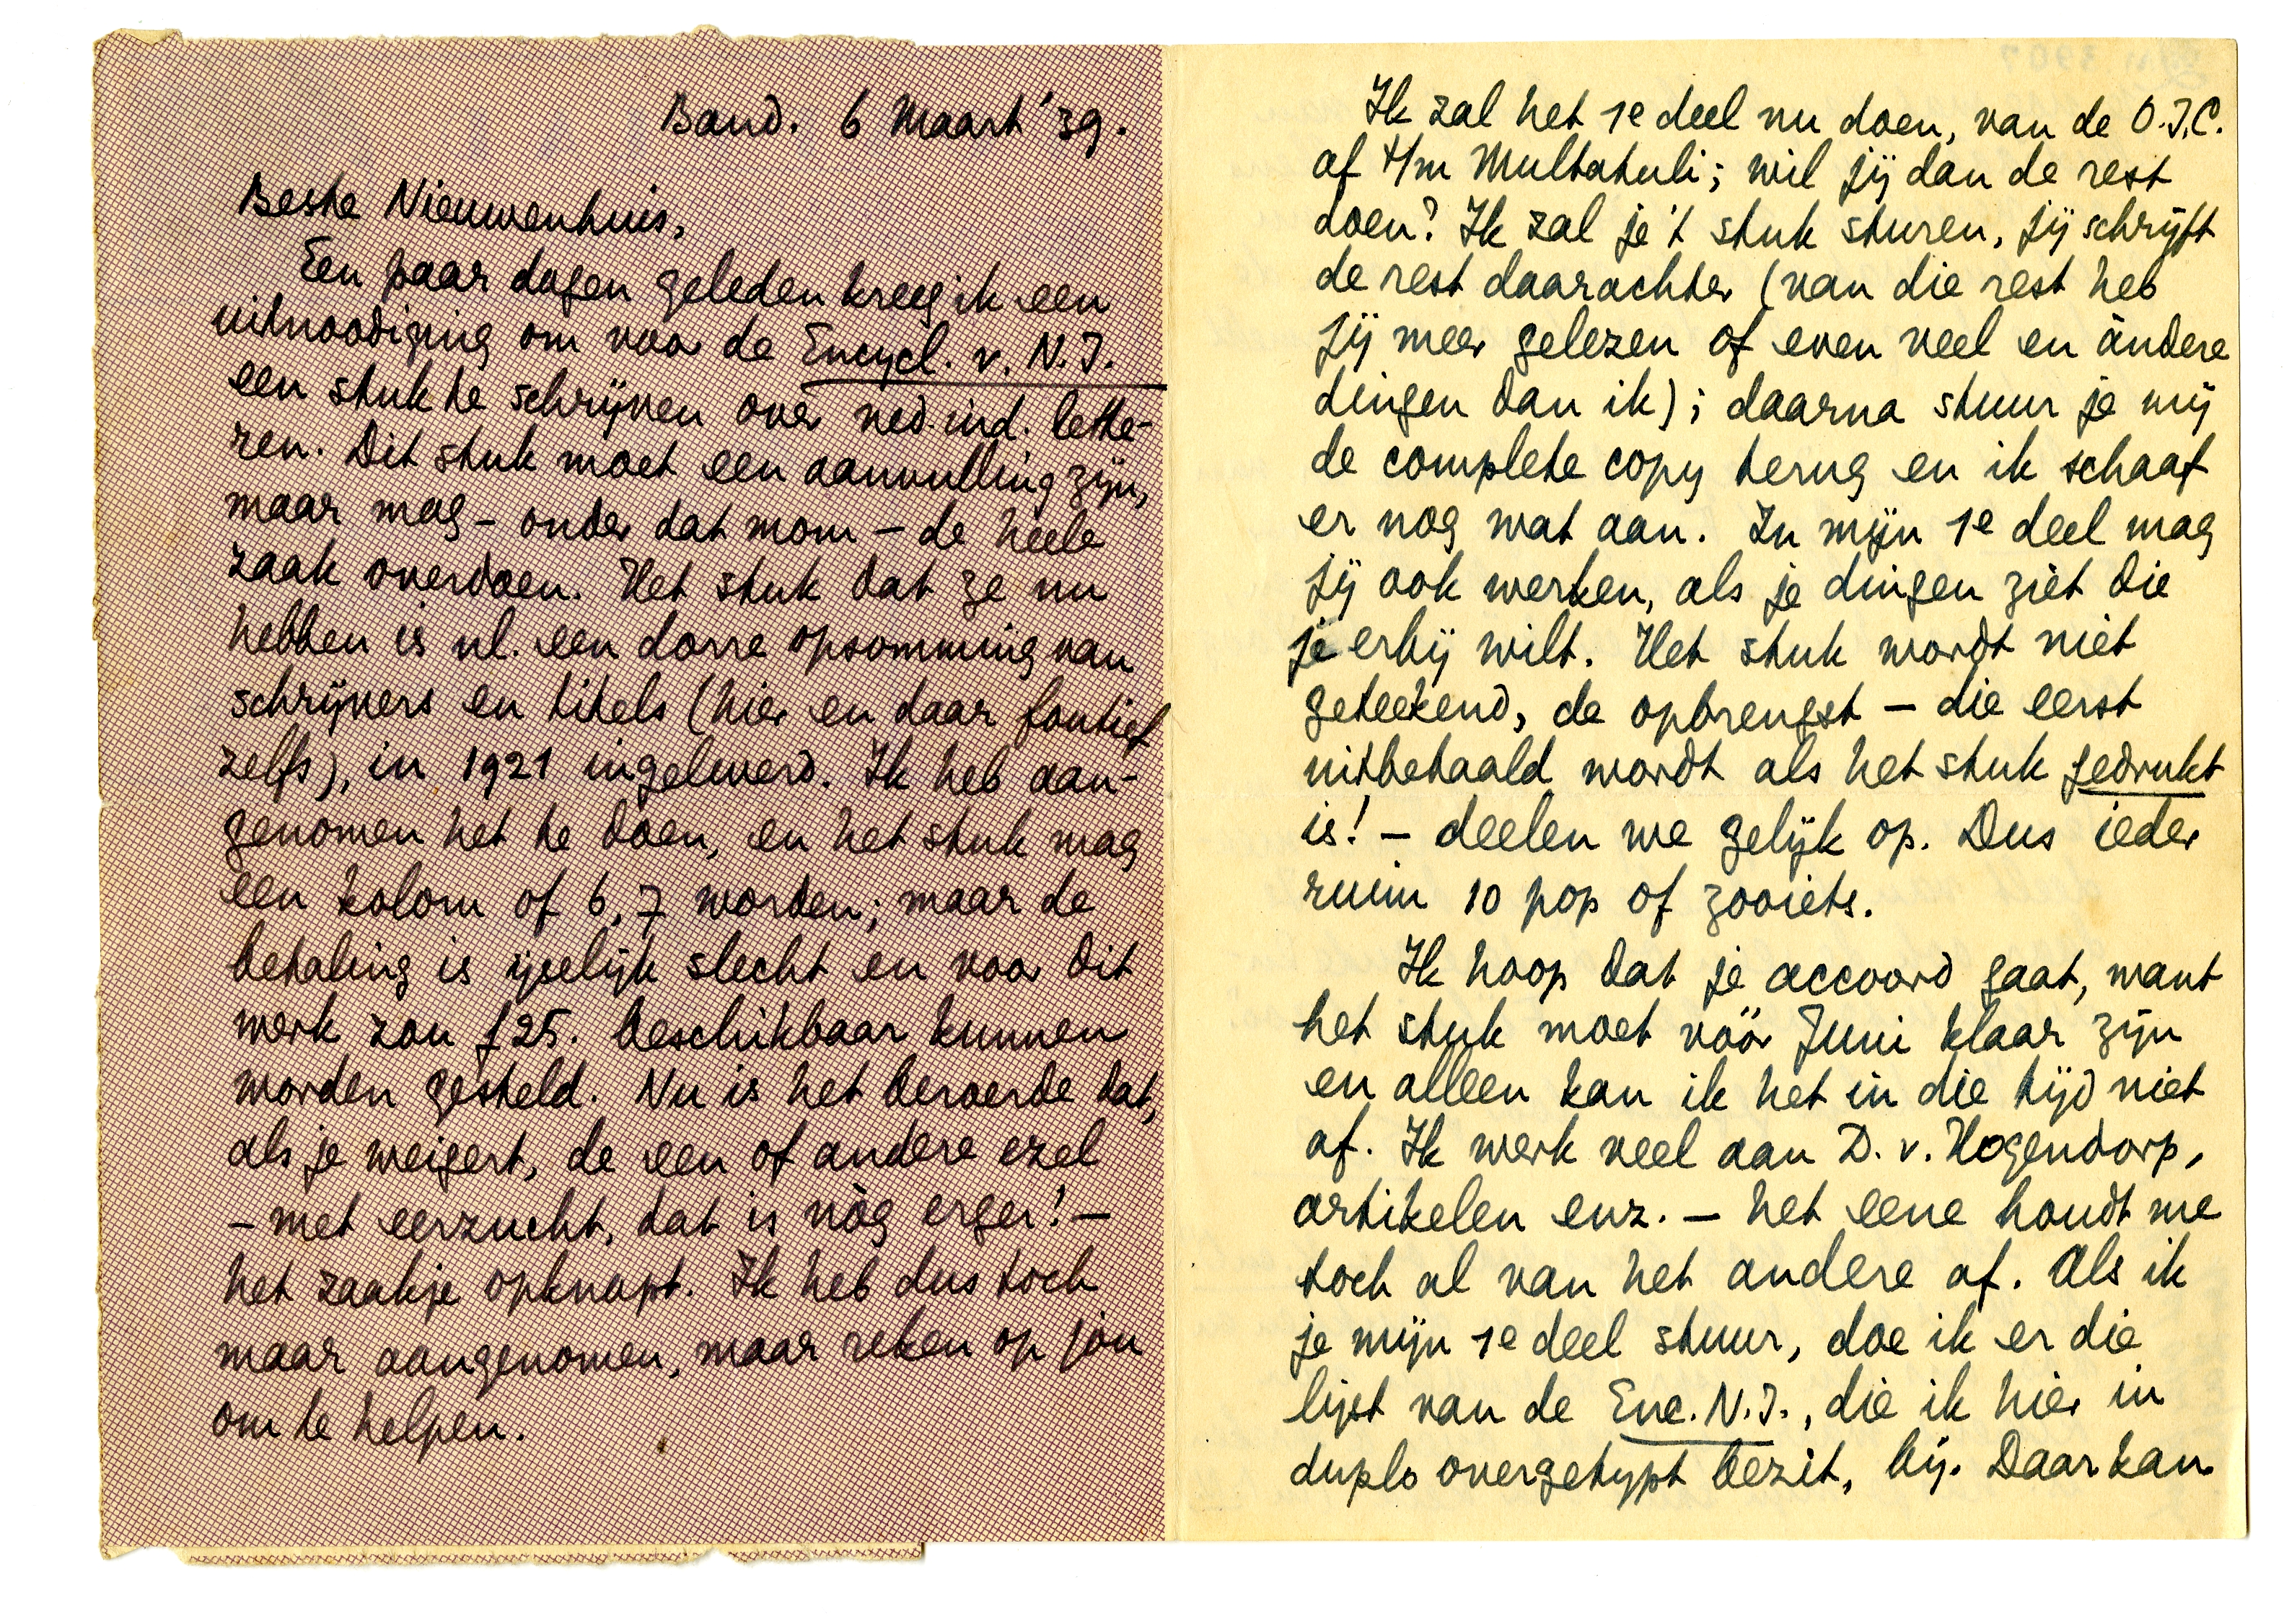 Band. 6 Maart '39.
Beste Nieuwenhuis,
Een paar dagen geleden kreeg ik een
uitnoodiging om voor de Encycl. v. N.I.
een stuk te schrijven over ned. ind. lette-
ren. Dit stuk moet een aanvulling zijn,
maar mag – onder dat mom – de heele
zaak overdoen. Het stuk dat ze nu
hebben is nl. een dorre opsomming van
schrijvers en titels (hier en daar foutief
zelfs), in 1921 ingeleverd. Ik heb aan-
genomen het te doen, en het stuk mag
een kolom of 6, 7 worden; maar de
betaling is ijselijk slecht en voor dit
werk zou f 25. beschikbaar kunnen
worden gesteld. Nu is het beroerde dat,
als je weigert, de een of andere ezel
– met eerzucht, dat is nòg erger! –
het zaakje opknapt. Ik heb dus toch
maar aangenomen, maar reken op jòu
om te helpen.
Ik zal het 1e deel nu doen, van de O.I.C.
af t/m Multatuli; wil jij dan de rest
doen? Ik zal je 't stuk sturen, jij schrijft
de rest daarachter (van die rest heb
jij meer gelezen of even veel en àndere
dingen dan ik); daarna stuur je mij
de complete copy terug en ik schaaf
er nog wat aan. In mijn 1e deel mag
jij ook werken, als je dingen ziet die
je erbij wilt. Het stuk wordt niet
geteekend, de opbrengst – die eerst
uitbetaald wordt als het stuk gedrukt
is! – deelen we gelijk op. Dus ieder
ruim 10 pop of zooiets.
Ik hoop dat je accoord gaat, want
het stuk moet vóór Juni klaar zijn
en alleen kan ik het in die tijd niet
af. Ik werk veel aan D. v. Hogendorp,
artikelen enz. – het eene houdt me
toch al van het andere af. Als ik
je mijn 1e deel stuur, doe ik er die
lijst van de Enc. N.I., die ik hier in
duplo overgetypt bezit, bij. Daar kan